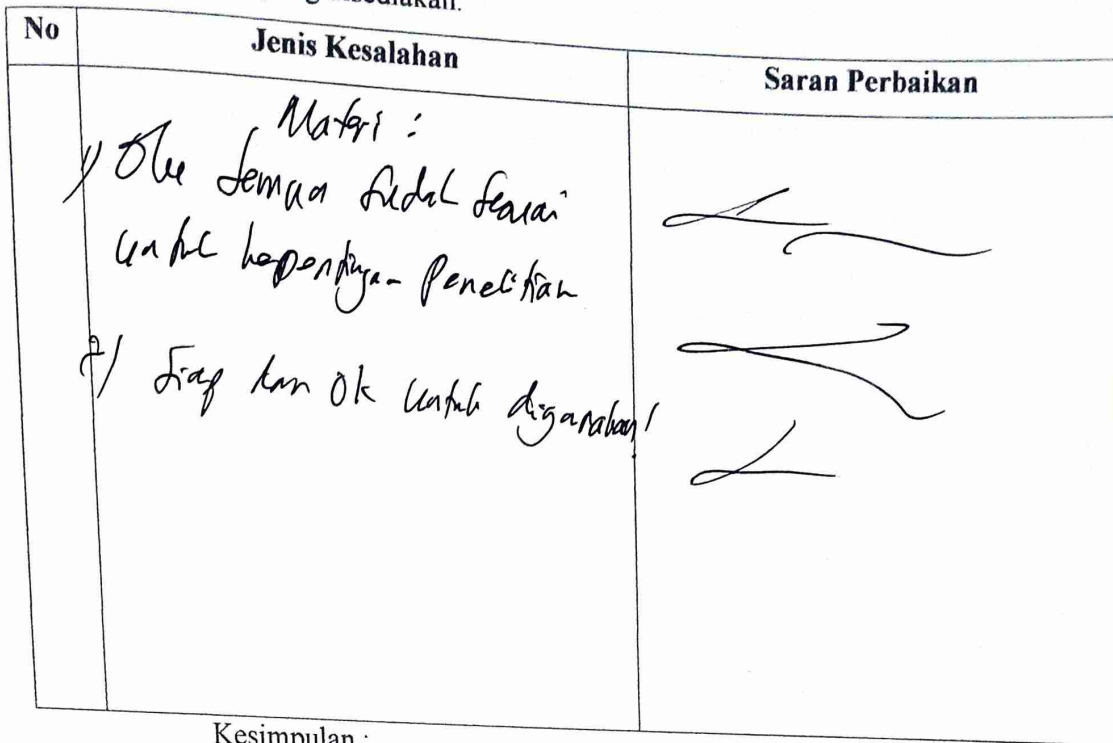 disediakan.
No Jenis Kesalahan Saran Perbaikan
Materi :
1) Oke semua sudah sesuai
untuk kepentingan Penelitian
2) Siap dan Ok untuk digunakan!
Kesimpulan :